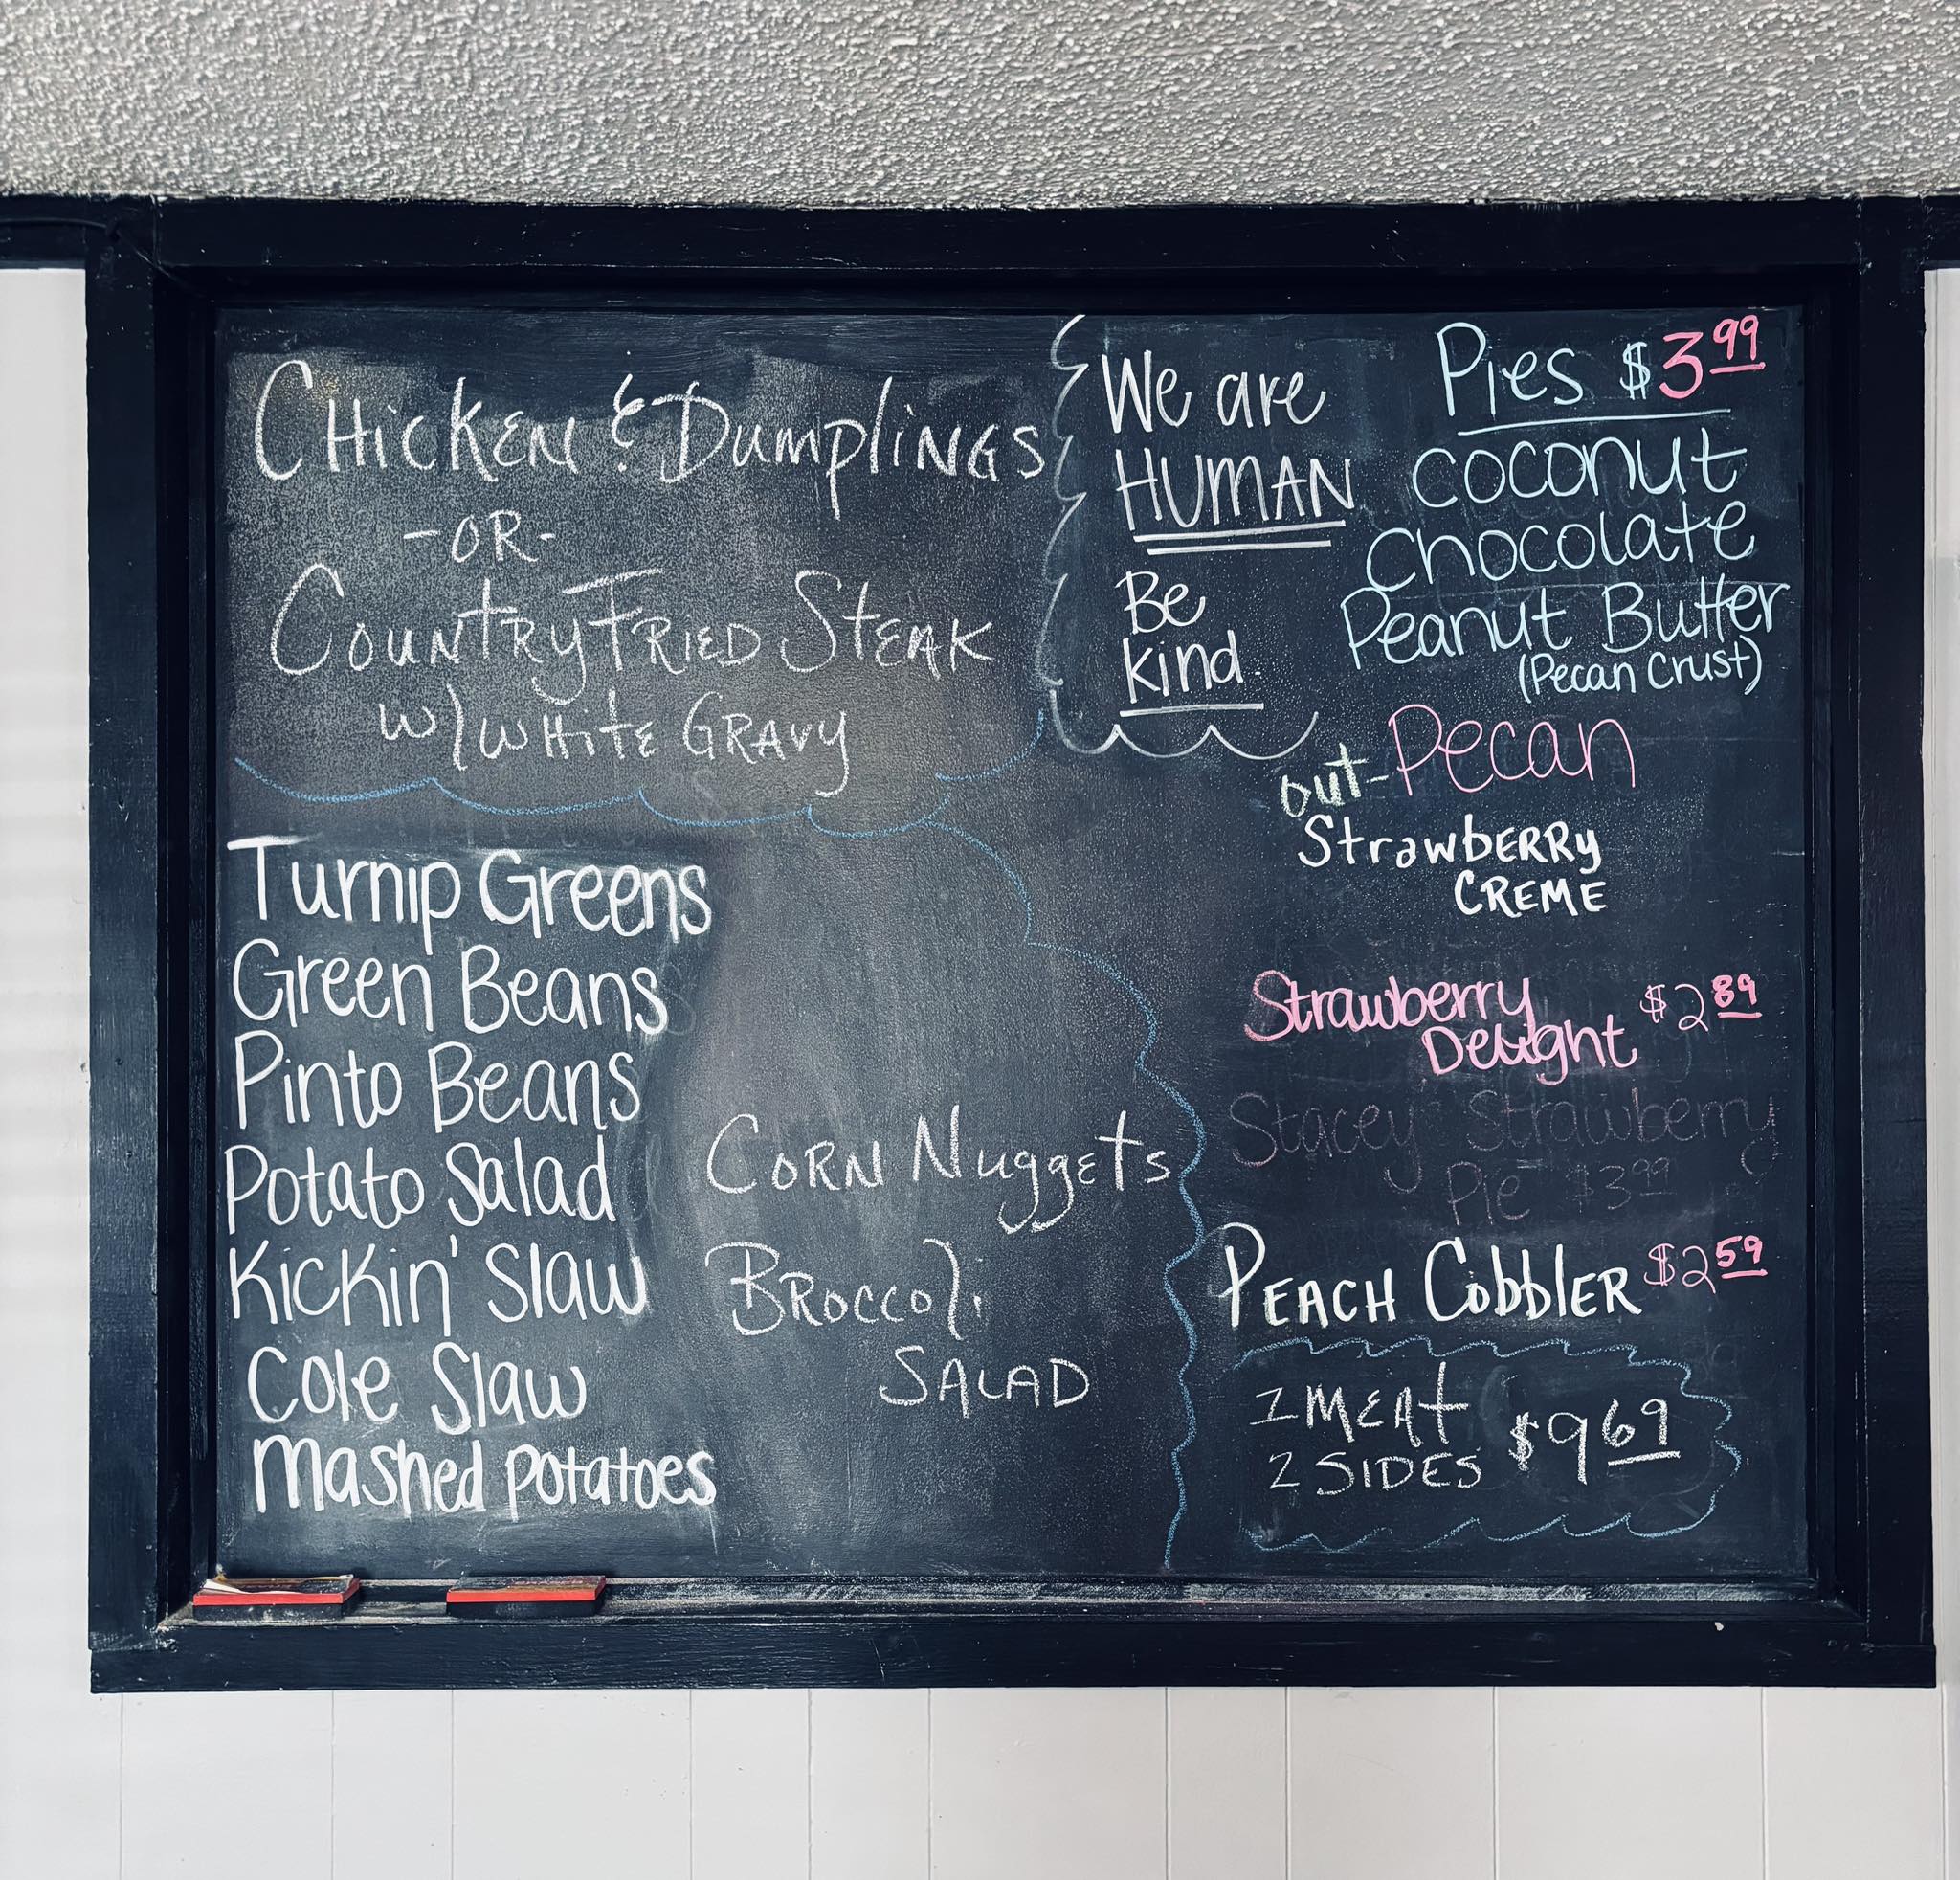 Chicken & Dumplings
-OR-
Country Fried Steak
w/ White Gravy
We are
HUMAN
Be
kind.
Pies $3.99
Coconut
Chocolate
Peanut Butter
(Pecan Crust)
out- Pecan
Strawberry
CREME
Strawberry
Delight $2.89
Stacey's Strawberry
Pie $3.99
Peach Cobbler $2.59
1 MEAT
2 SIDES $9.69
Turnip Greens
Green Beans
Pinto Beans
Potato Salad
Kickin' Slaw
Cole Slaw
Mashed Potatoes
Corn Nuggets
Broccoli
SALAD